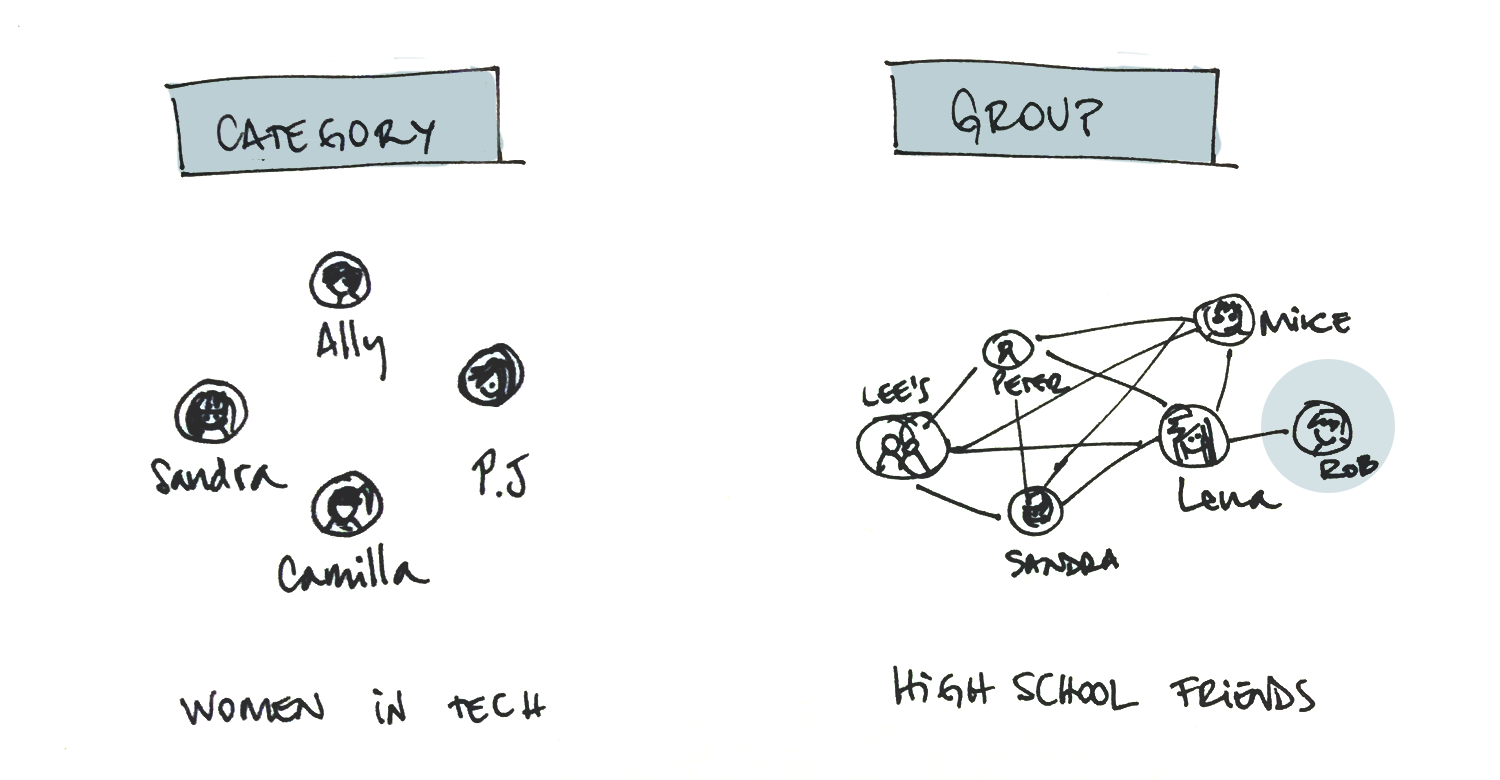 CATEGORY
Ally
Sandra
P.J
Camilla
WOMEN IN TECH
GROUP
MIKE
PETER
LEE'S
ROB
Lena
SANDRA
HIGH SCHOOL FRIENDS